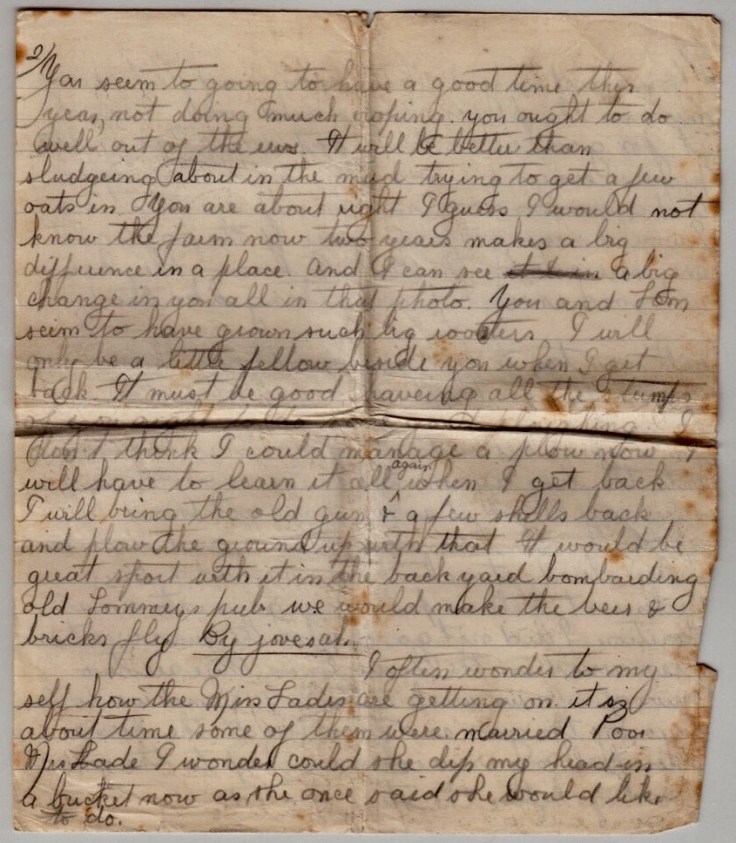 2/
You seem to going to have a good time this
year, not doing much roping. you ought to do
well out of the ews. It will be better than
sludgeing about in the mud trying to get a few
oats in. You are about right I guess I would not
know the farm now two years makes a big
diffrence in a place. And I can see a big
change in you all in that photo. You and Tom
seem to have grown such big I will
only be a little fellow beside you when I get
back. It must be good haveing all the stumps
of I
don't think I could manage a plow now I
will have to learn it all again when I get back
I will bring the old gun & a few shells back
and plow the ground up with that It would be
great sport with it in the back yard bombarding
old Tommeys pub we would make the beer &
bricks fly By jove
I often wonder to my
self how the Miss Ladies are getting on. it is
about time some of them were married Poor
Mrs Lade I wonder could she dip my head in
a bucket now as she once said she would like
to do.